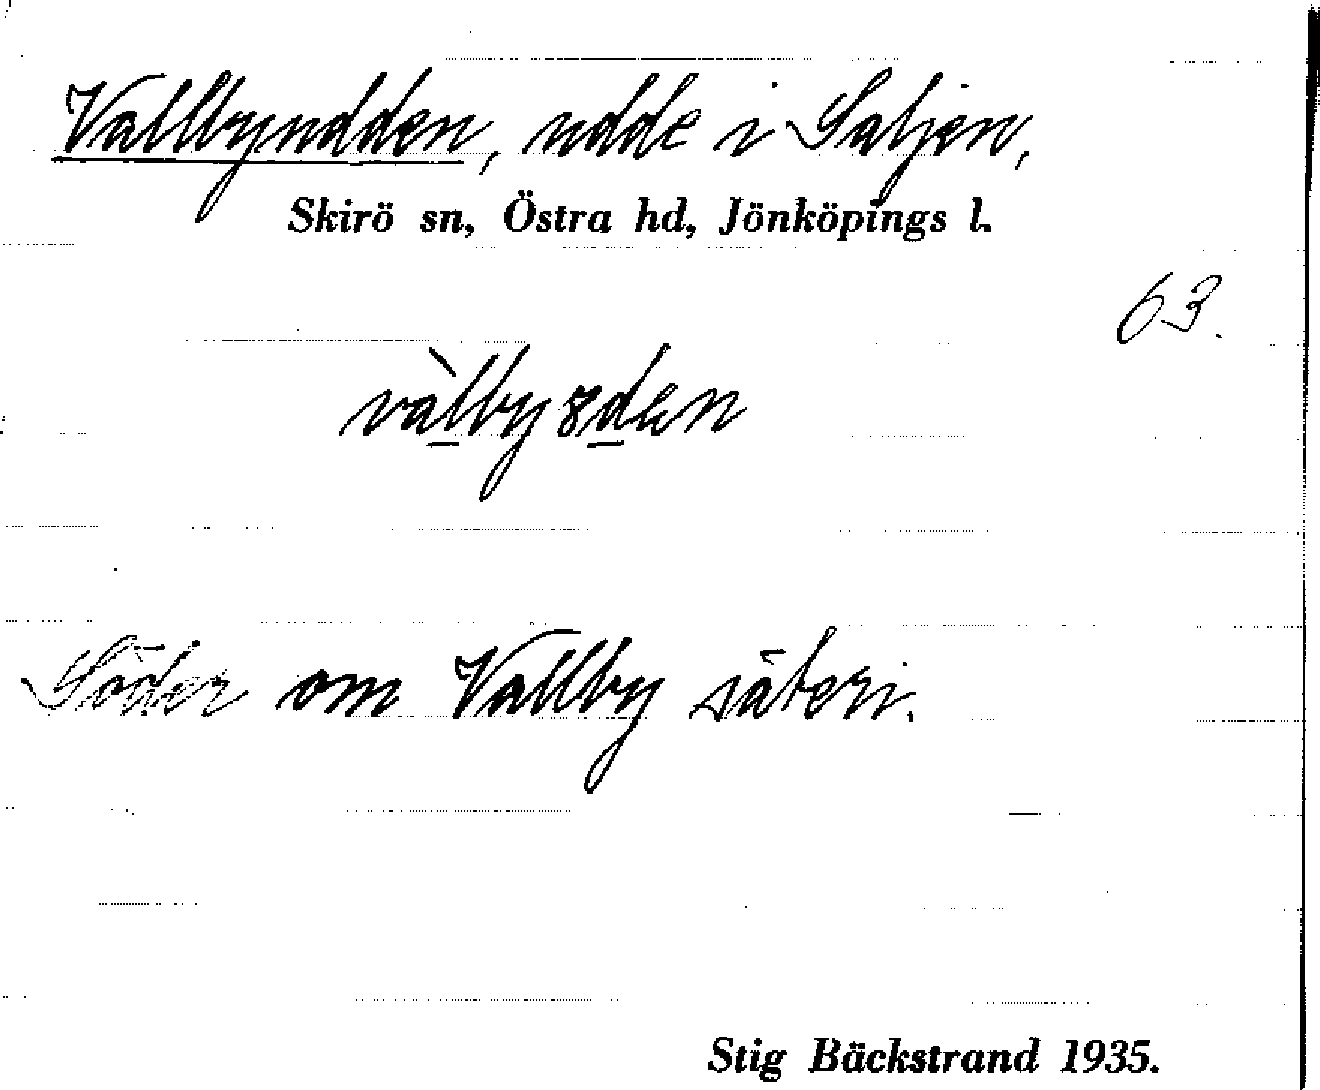 Vallbyudden, udde i Saljen,
Skirö sn, Östra hd, Jönköpings l.
63.
vàlbyȣden
Söder om Vallby säteri.
Stig Bäckstrand 1935.